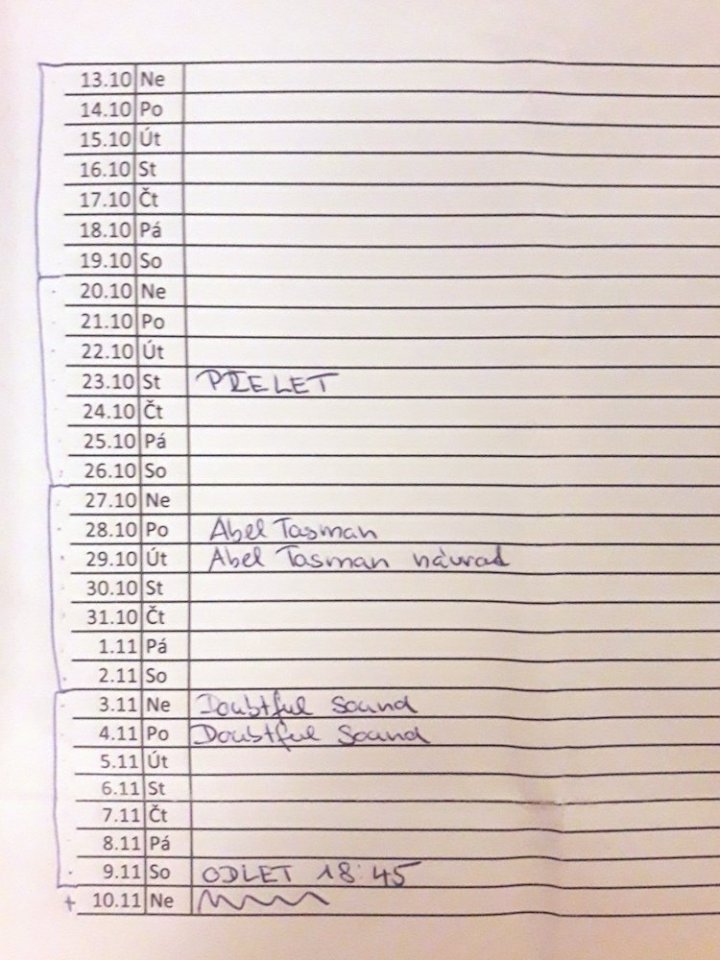 13.10 Ne
14.10 Po
15.10 Út
16.10 St
17.10 Čt
18.10 Pá
19.10 So
20.10 Ne
21.10 Po
22.10 Út
23.10 St PŘELET
24.10 Čt
25.10 Pá
26.10 So
27.10 Ne
28.10 Po Abel Tasman
29.10 Út Abel Tasman návrat
30.10 St
31.10 Čt
1.11 Pá
2.11 So
3.11 Ne Doubtful Sound
4.11 Po Doubtful Sound
5.11 Út
6.11 St
7.11 Čt
8.11 Pá
9.11 So ODLET 18:45
+ 10.11 Ne